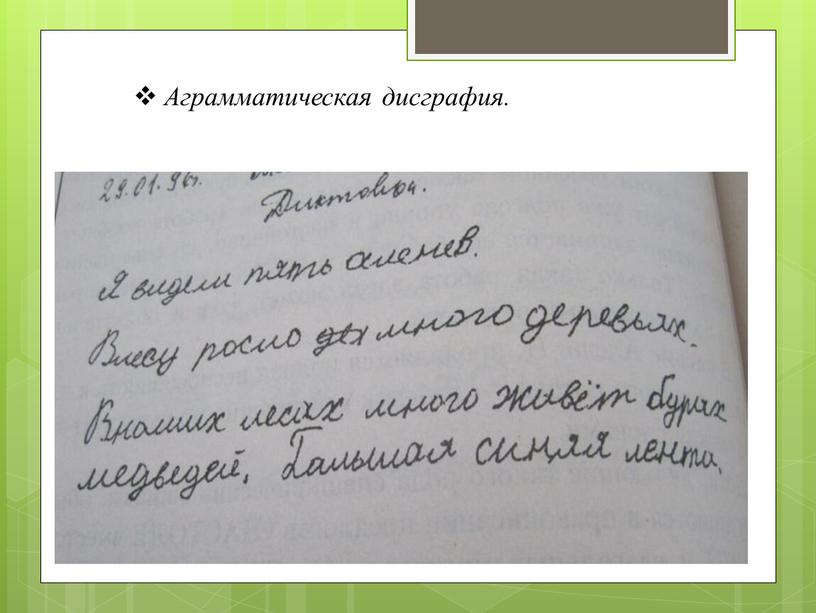 ❖ Аграмматическая дисграфия.
29.01.96г.
Диктовки.
Я видели пять аленев.
Влесу росло много деревьях.
Внаших лесах много живёт бурах
медведей. Балшая синяя лента.